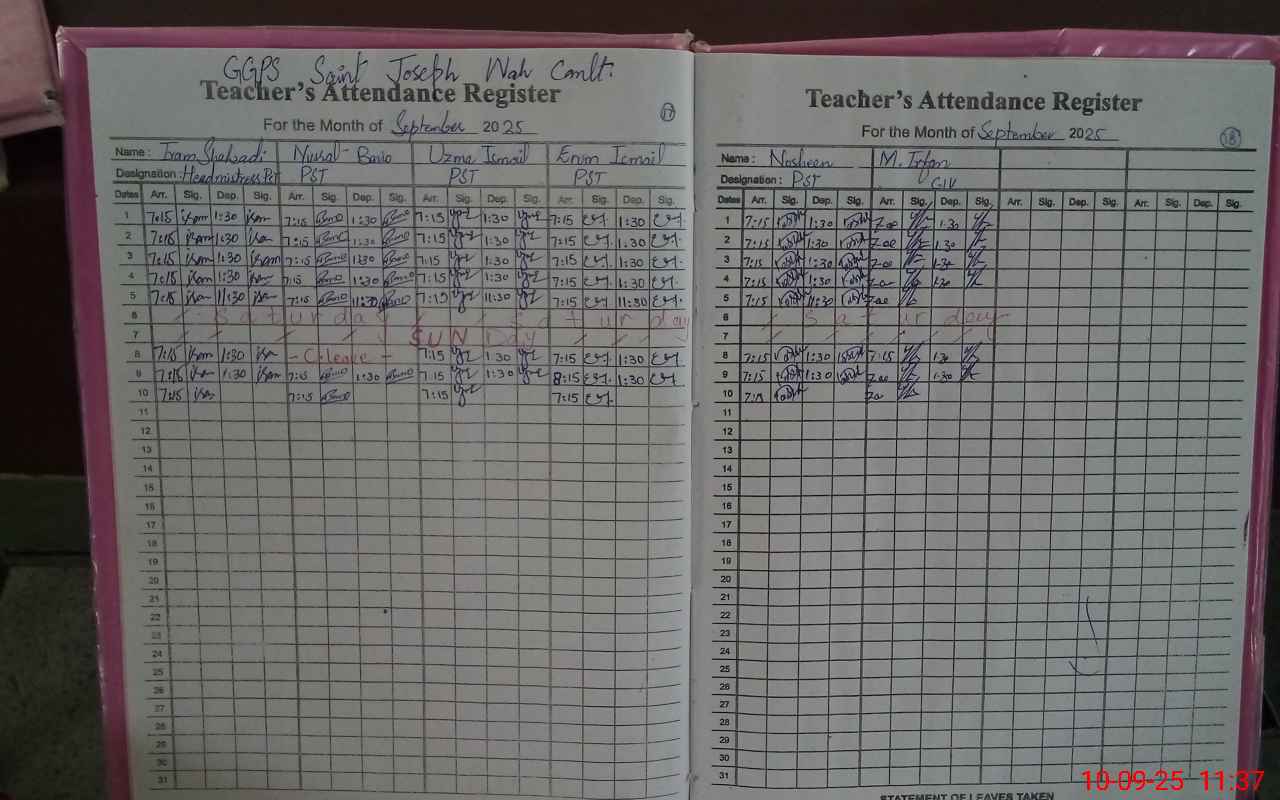 GGPS Saint Joseph Wah Cantt.
Teacher's Attendance Register
17
For the Month of September 2025
Name : Iram Shahzadi Nusrat Bano Uzma Ismail Erum Ismail
Designation : Headmistress PST PST PST PST
Dates Arr. Sig. Dep. Sig. Arr. Sig. Dep. Sig. Arr. Sig. Dep. Sig. Arr. Sig. Dep. Sig.
1 7:15 1:30 7:15 1:30 7:15 1:30 7:15 1:30
2 7:15 1:30 7:15 1:30 7:15 1:30 7:15 1:30
3 7:15 1:30 7:15 1:30 7:15 1:30 7:15 1:30
4 7:15 1:30 7:15 1:30 7:15 1:30 7:15 1:30
5 7:15 11:30 7:15 11:30 7:15 11:30 7:15 11:30
6 Saturday
7 SUN Day
8 7:15 1:30 - C.leave - 7:15 1:30 7:15 1:30
9 7:15 1:30 7:15 1:30 7:15 1:30 8:15 1:30
10 7:15 7:15 7:15 7:15
11
12
13
14
15
16
17
18
19
20
21
22
23
24
25
26
27
28
29
30
31
Teacher's Attendance Register
18
For the Month of September 2025
Name : Nosheen M. Irfan
Designation : PST CIV
Dates Arr. Sig. Dep. Sig. Arr. Sig. Dep. Sig. Arr. Sig. Dep. Sig. Arr. Sig. Dep. Sig.
1 7:15 1:30 7:00 1:30
2 7:15 1:30 7:00 1:30
3 7:15 1:30 7:00 1:30
4 7:15 1:30 1:30
5 7:15 11:30 7:00
6 Saturday
7
8 7:15 1:30 7:15 1:30
9 7:15 1:30 7:00 1:30
10 7:15
11
12
13
14
15
16
17
18
19
20
21
22
23
24
25
26
27
28
29
30
31
STATEMENT OF LEAVES TAKEN
10-09-25 11:37